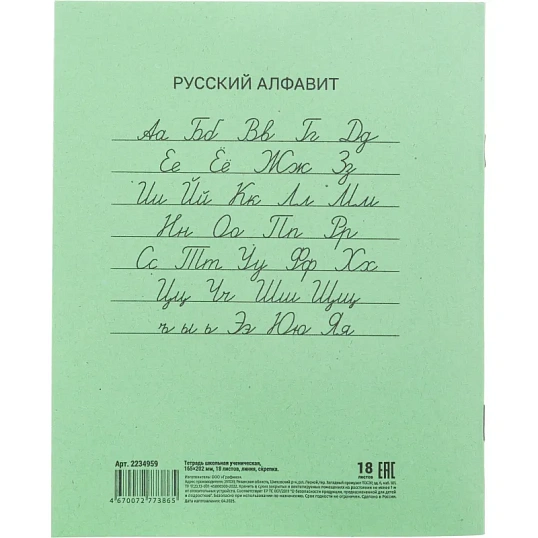 РУССКИЙ АЛФАВИТ
Аа Бб Вв Гг Дд
Ее Ёё Жж Зз
Ии Йй Кк Лл Мм
Нн Оо Пп Рр
Сс Тт Уу Фф Хх
Цц Чч Шш Щщ
ъ ы ь Ээ Юю Яя
Арт. 2234959
Тетрадь школьная ученическая,
165×202 мм, 18 листов, линия, скрепка.
18
листов
EAC
4670072773865